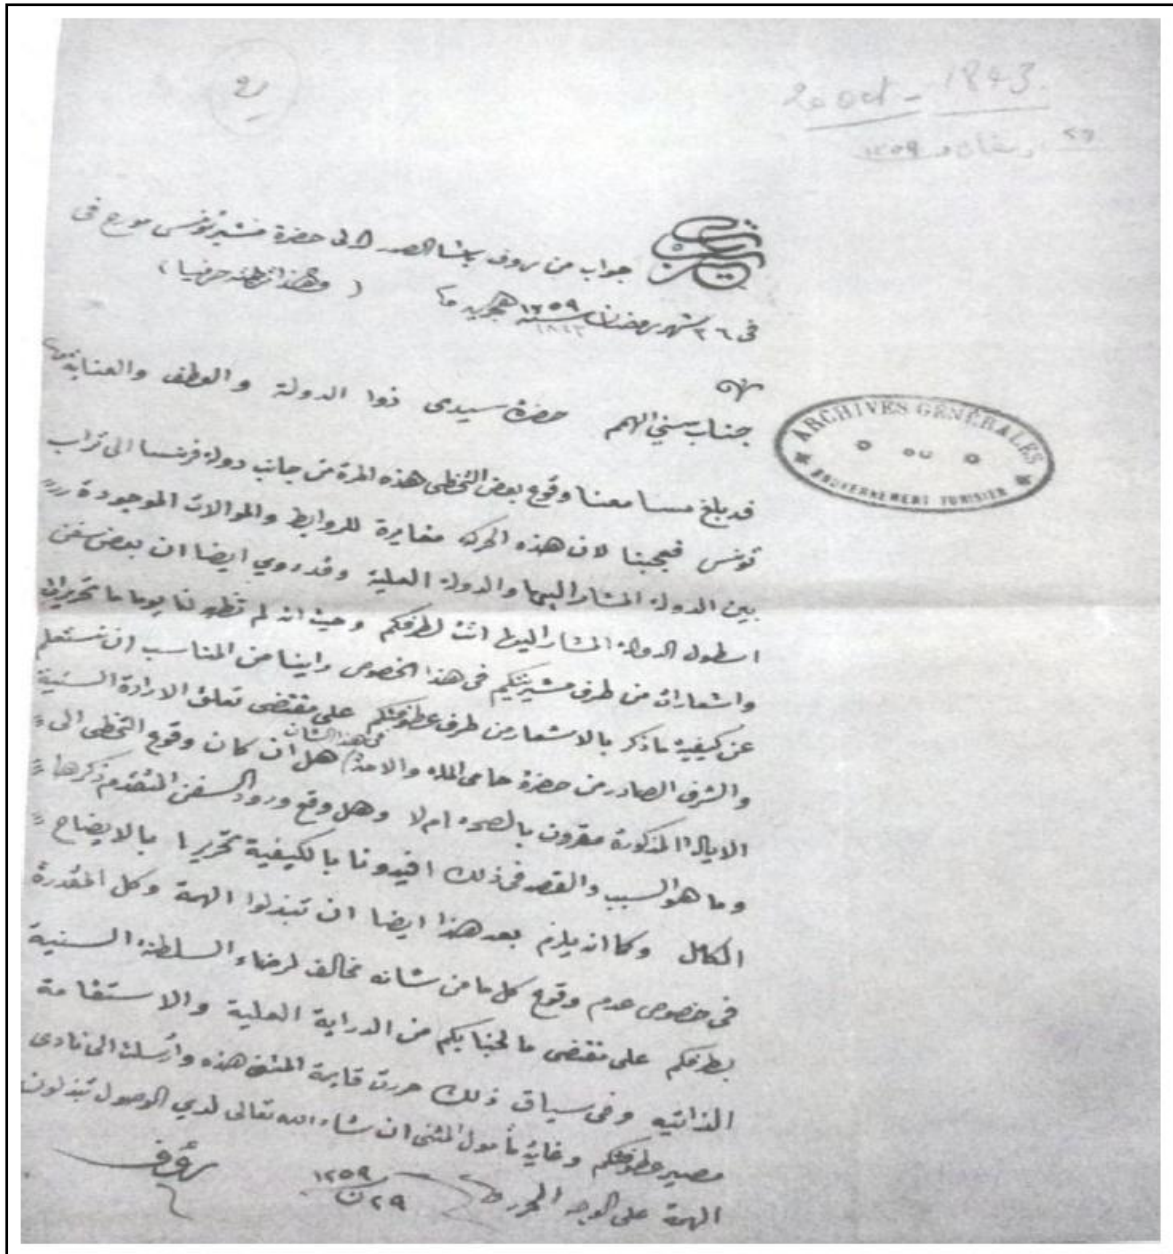 20 oct - 1843.
٢٦ رمضان ١٢٥٩
جواب من رءوف باشا الصدر الى حضرة مشير تونس مورخ في
في ٢٦ شهر رمضان سنة ١٢٥٩ هجرية
١٨٤٣
جناب سني الهمم حضرة سيدى ذوا الدولة والعطف والعناية
ARCHIVES GÉNÉRALES
DU
GOUVERNEMENT TUNISIEN
قد بلغ مسامعنا وقوع بعض التخطى هذه المرة من جانب دولة فرنسا الى تراب
تونس فعجبنا لان هذه الحركة مغايرة للروابط والموالات الموجودة
بين الدولة المشار اليها والدولة العلية وقد روي ايضا ان بعض سفن
اسطول الدولة المشار اليها اتت لطرفكم وحيث انه لم تظهر لنا يوما ما تحريرات
واشعارات من طرف مشيريتكم في هذا الخصوص راينا من المناسب ان نستعلم
عن كيفية ما ذكر بالاشعار من طرف عطوفتكم على مقتضى تعلق الارادة السنية
في هذا الشان
والشرف الصادر من حضرة حامى الملة والامة هل ان كان وقوع التخطى الى
الايالة المذكورة مقرون بالصحة ام لا وهل وقع ورود السفن المتقدم ذكرها
وما هو السبب والقصد في ذلك افيدونا بالكيفية تحريرا بالايضاح
الكامل وكما انه يلزم بعد هذا ايضا ان تبذلوا الهمة وكل المقدرة
في خصوص عدم وقوع كل ما من شانه مخالف لرضاء السلطنة السنية
بطرفكم على مقتضى ما لجنابكم من الدراية العلية والاستقامة
الذاتيه وفي سياق ذلك حررت قايمة المثنى هذه وارسلت الى نادى
مصير عطوفتكم وغاية مأمول المثنى ان شاء الله تعالى لدي الوصول تبذلون
الهمة على الوجه المحرر
٢٩ ن ١٢٥٩
رءوف